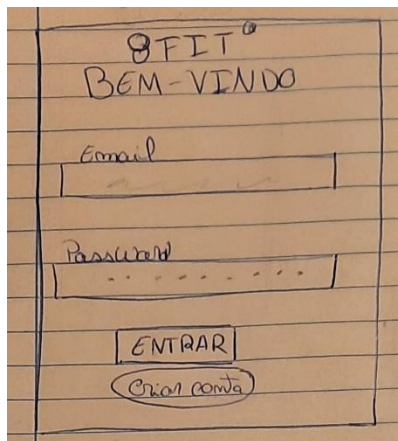 8FIT
BEM-VINDO
Email
Password
ENTRAR
Criar conta